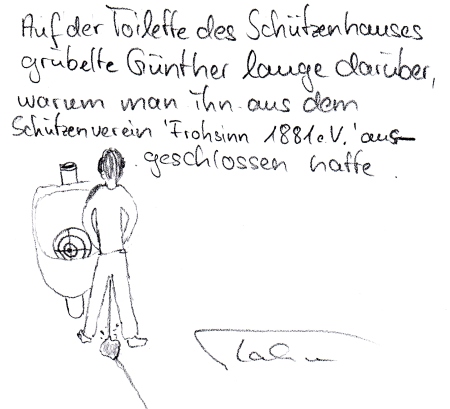 Auf der Toilette des Schützenhauses
grübelte Günther lange darüber,
warum man ihn aus dem
Schützenverein 'Frohsinn 1881 e.V.' aus-
geschlossen hatte.